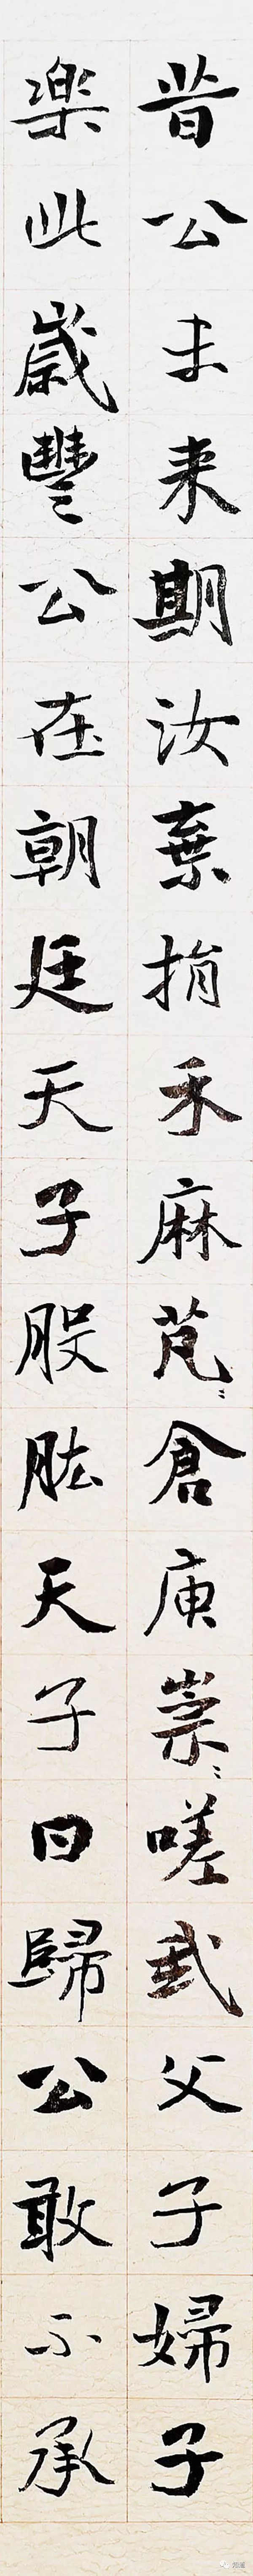 昔公未来期汝棄捐禾麻芃〻倉庾崇〻嗟我父子婦子
楽此歳豐公在朝廷天子股肱天子曰歸公敢不承